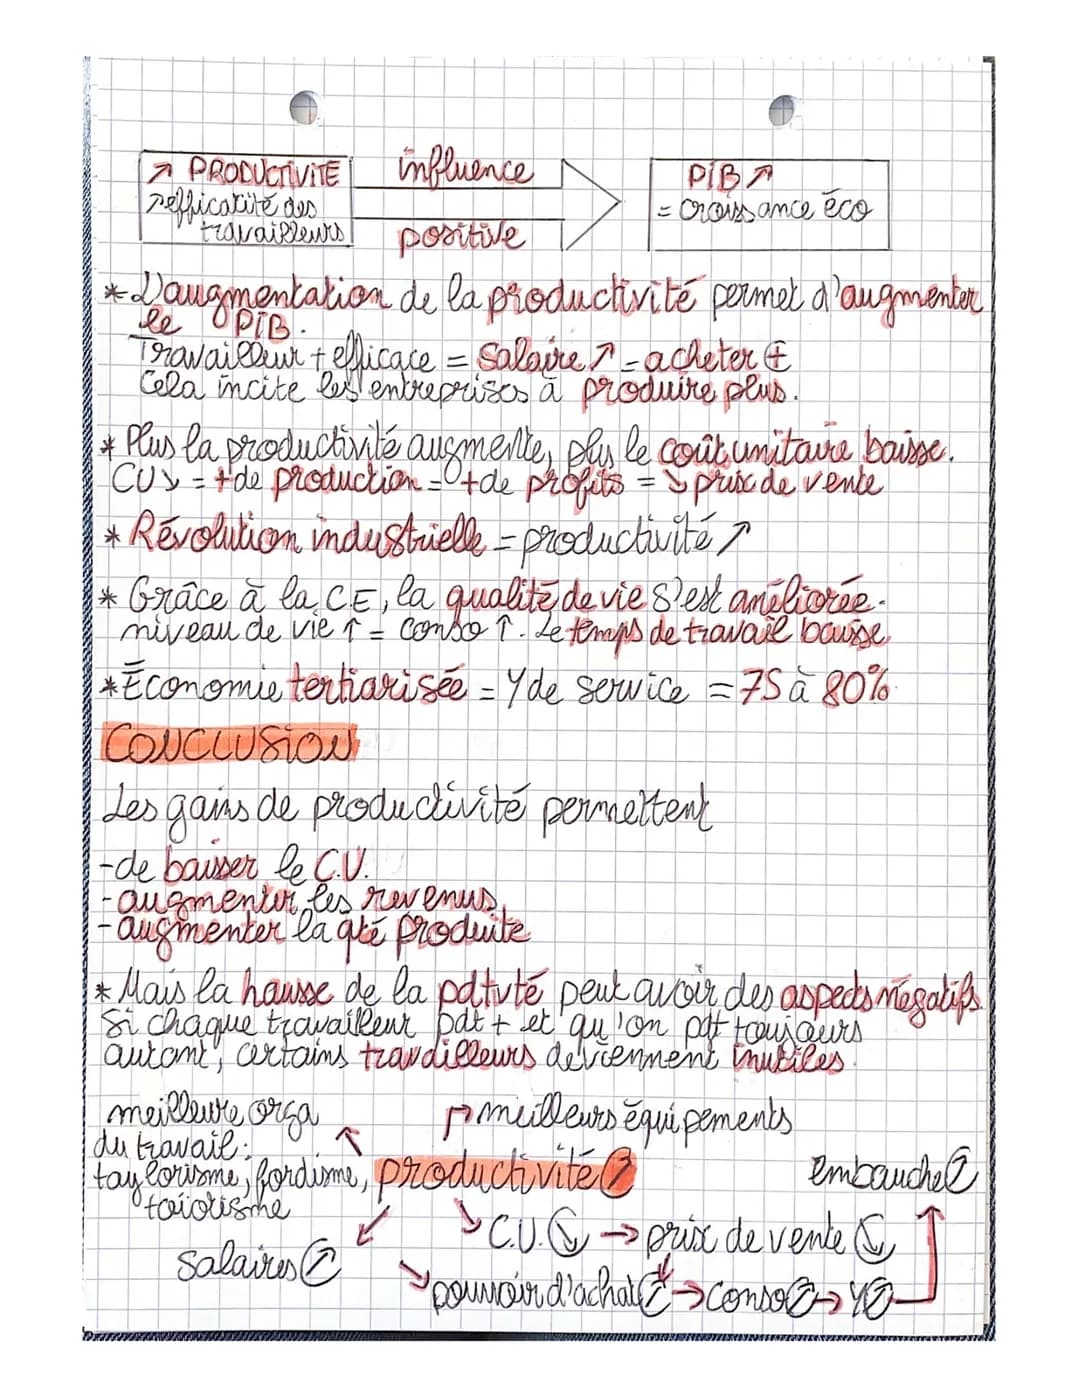 ↗ PRODUCTIVITÉ influence PIB ↗
↗ efficacité des = croissance éco
travailleurs positive
* L'augmentation de la productivité permet d'augmenter
le PIB.
Travailleur + efficace = salaire ↗ = acheter ⊕
Cela incite les entreprises à produire plus.
* Plus la productivité augmente, plus le coût unitaire baisse.
CU ↘ = + de production = + de profits = ↘ prix de vente
* Révolution industrielle = productivité ↗
* Grâce à la CE, la qualité de vie s'est améliorée.
niveau de vie ↑ = conso ↑. Le temps de travail baisse
* Économie tertiarisée = Y de service = 75 à 80%
CONCLUSION
Les gains de productivité permettent
- de baisser le C.U.
- augmenter les revenus
- augmenter la qté produite
* Mais la hausse de la pdtvté peut avoir des aspects négatifs.
Si chaque travailleur pdt + et qu'on pdt toujours
autant, certains travailleurs deviennent inutiles.
meilleure orga → meilleurs équipements
du travail :
taylorisme, fordisme, productivité ↗ embauche ↗
toyotisme
↘ C.U. ↘ → prix de vente ↘
salaires ↗
↘ pouvoir d'achat ↗ → conso ↗ → Y ↗